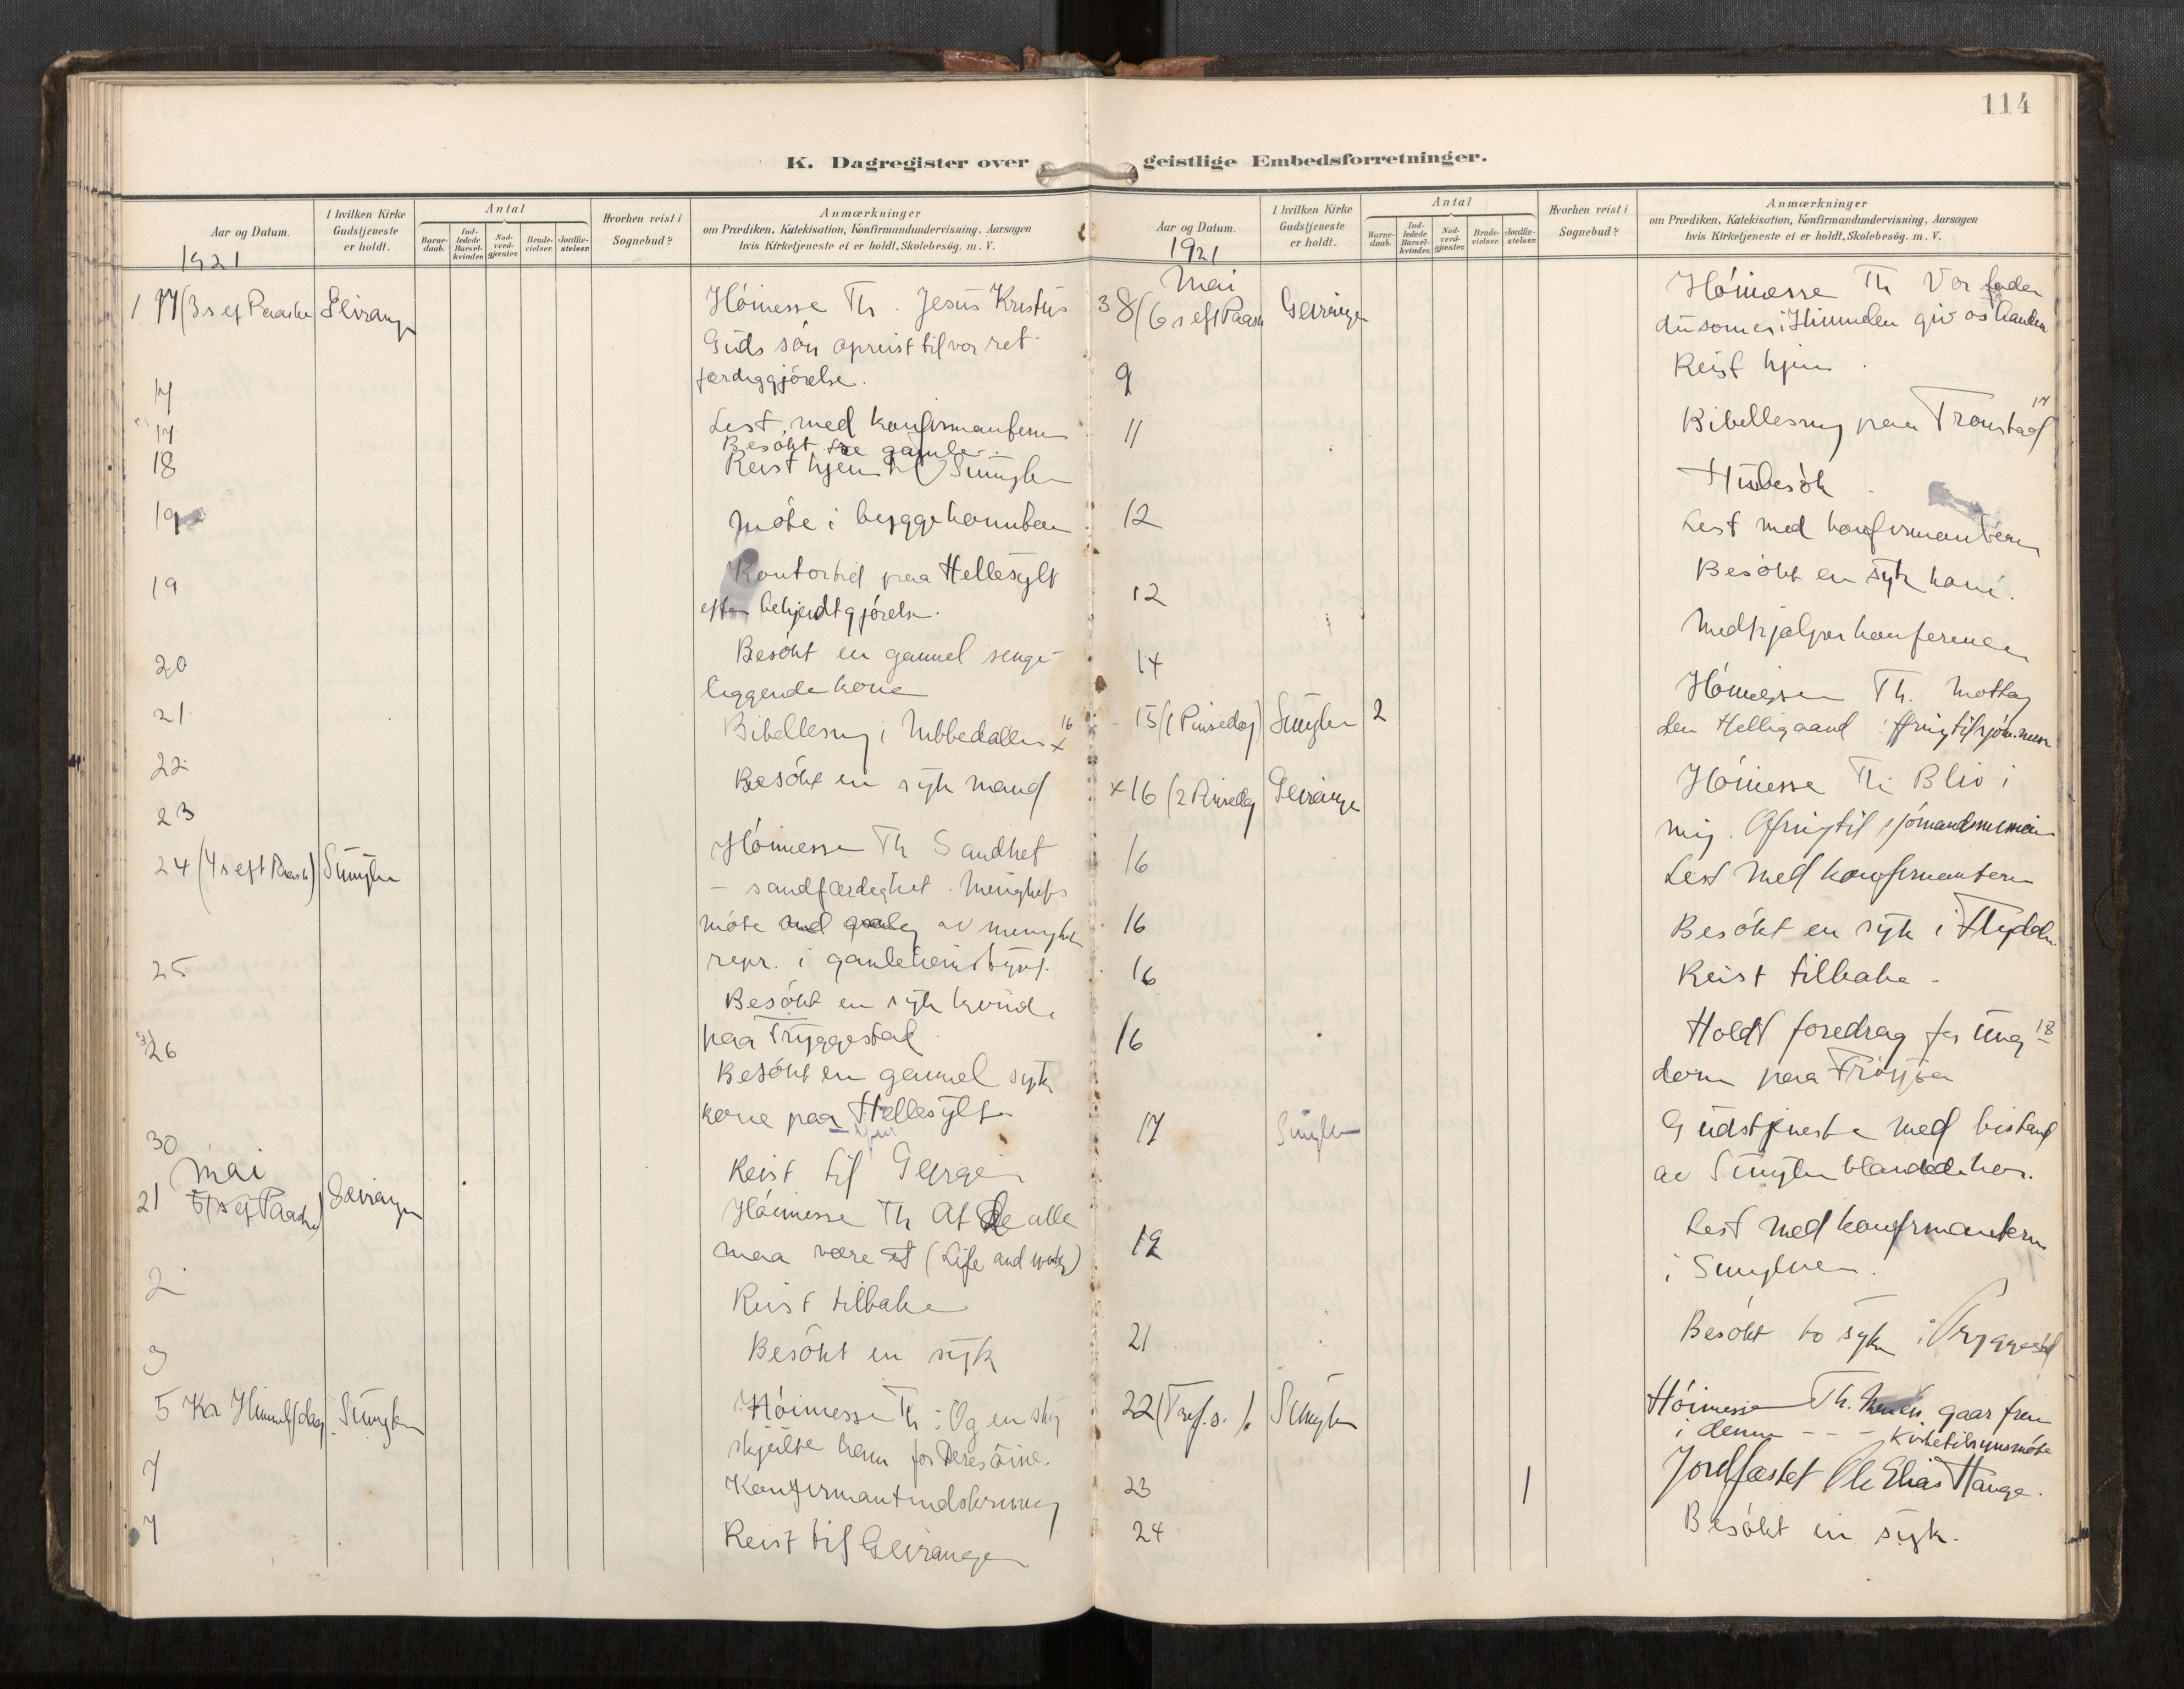 114
K. Dagregister over geistlige Embedsforretninger.
Aar og Datum.
I hvilken Kirke
Gudstjeneste
er holdt.
Antal
Barne-
daab.
Ind-
ledede
Barsel-
kvinder.
Nad-
verd-
gjæster.
Brude-
vielser.
Jordfæ-
stelser.
Hvorhen reist i
Sognebud?
Anmærkninger
om Prædiken, Katekisation, Konfirmandundervisning, Aarsagen
hvis Kirketjeneste ei er holdt, Skolebesøg. m. V.
1921
17 (3 s ef Paaske Geiranger
Höimesse Th. Jesus Kristus
Guds sön opreist til vor ret-
færdiggjörelse.
17
Lest med konfirmanterne
17
Besökt tre gamle
18
Reist hjem til Sunylven
19
Möte i byggekomiteen
19
Kontortid paa Hellesylt
efter bekjendtgjörelse.
20
Besökt en gammel senge-
liggende kone
21
Bibellesning i Nibbedalen x 16
22
Besökt en syk mand
23
24 (4 s eft Paask) Sunylven
Höimesse Th Sandhet
- sandfærdighet. Menighets
möte av menigh
repr. i gamleheimstyret.
25
Besökt en syk kvinde
paa Tryggestad
26
Besökt en gammel syk
kone paa Hellesylt
30
Reist til Geiranger
Mai
1 (5 s ef Paaske) Geiranger
Höimesse Th At de alle
maa være et (Life and work)
2
Reist tilbake
3
Besökt en syk
5 Kr Himmelf dag Sunylven
Höimesse Th: Og en sky
skjulte ham for deres öine.
7
Konfirmantindskrivning
7
Reist til Geiranger
Aar og Datum.
I hvilken Kirke
Gudstjeneste
er holdt.
Antal
Barne-
daab.
Ind-
ledede
Barsel-
kvinder.
Nad-
verd-
gjæster.
Brude-
vielser.
Jordfæ-
stelser.
Hvorhen reist i
Sognebud?
Anmærkninger
om Prædiken, Katekisation, Konfirmandundervisning, Aarsagen
hvis Kirketjeneste ei er holdt, Skolebesøg. m. V.
1921
Mai
8 (6 s eft Paask Geiranger
Höimesse Th Vor fader
du som er i Himmelen giv os
9
Reist hjem.
11
Bibellesning paa Tronstad 17
Husbesök.
12
Lest med konfirmanterne
12
Besökt en syk kone.
14
Medhjælperkonferense
15 (1 Pinsedag) Sunylven 2
Höimesse Th. Mottag
den Helligaand
x 16 (2 Pinsedag Geiranger
Höimesse Th: Bliv i
mig. Ofring til sjömandsmission
16
Lest med konfirmanterne
16
Besökt en syk i Flydalen
16
Reist tilbake
16
Holdt foredrag for ung 18
dom paa Fröysa
17 Sunylven
Gudstjeneste med bistand
av Sunylven blandede kor.
19
Lest med konfirmanterne
i Sunylven.
21
Besökt to syke i Tryggestad
22 (Tref. s.) Sunylven
Höimesse Th. gaar frem
i denne - - - Kirketilsynsmöte
23 1
Jordfæstet Ole Elias Hauge.
24
Besökt en syk.